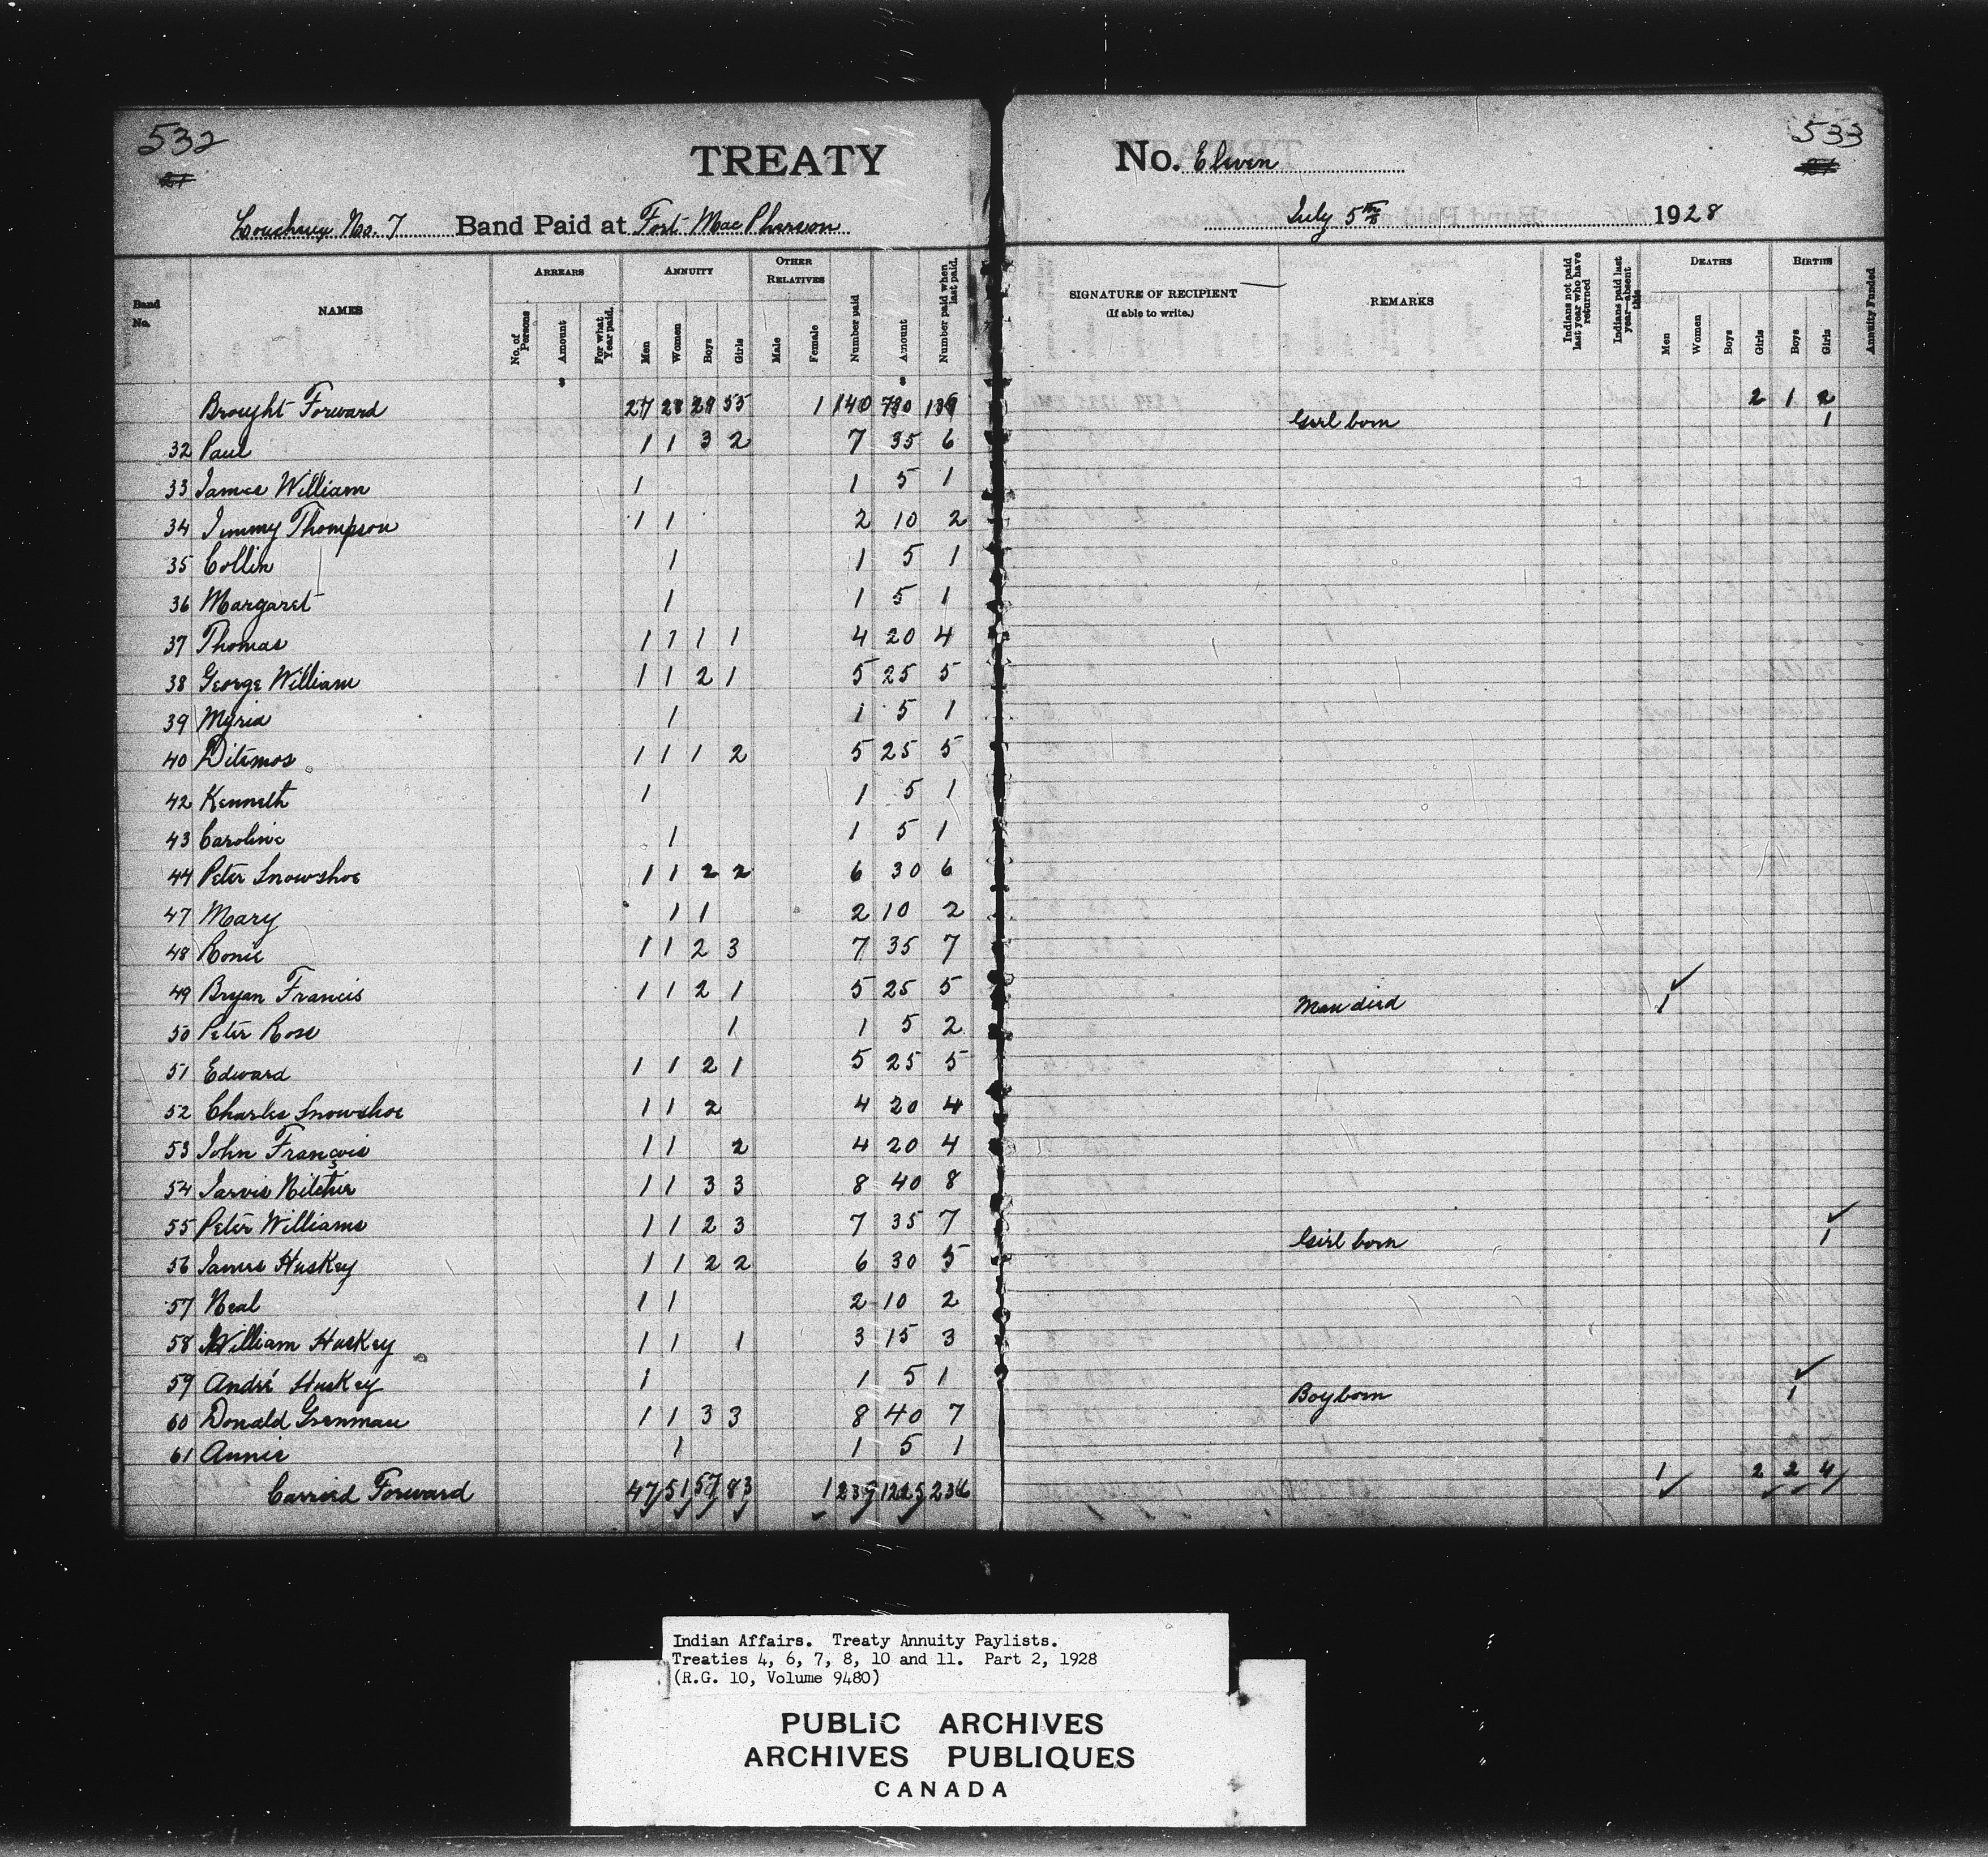 532
21
TREATY
No. Eleven
533
21
Loucheux No. 7 Band Paid at Fort MacPherson
July 5th 1928
Band No.
NAMES
ARREARS
No. of Persons
Amount
For what Year paid.
ANNUITY
Men
Women
Boys
Girls
OTHER RELATIVES
Male
Female
Number paid
Amount
Number paid when last paid.
SIGNATURE OF RECIPIENT
(If able to write.)
REMARKS
Indians not paid last year who have returned
Indians paid last year—absent this
DEATHS
Men
Women
Boys
Girls
BIRTHS
Boys
Girls
Annuity Funded
$ $
Brought Forward 27 28 29 55 1 140 790 139 2 1 2
32 Paul 1 1 3 2 7 35 6 Girl born 1
33 James William 1 1 5 1
34 Jimmy Thompson 1 1 2 10 2
35 Collin 1 1 5 1
36 Margaret 1 1 5 1
37 Thomas 1 1 1 1 4 20 4
38 George William 1 1 2 1 5 25 5
39 Myria 1 1 5 1
40 Ditemos 1 1 1 2 5 25 5
42 Kenneth 1 1 5 1
43 Caroline 1 1 5 1
44 Peter Snowshoe 1 1 2 2 6 30 6
47 Mary 1 1 2 10 2
48 Ronie 1 1 2 3 7 35 7
49 Bryan Francis 1 1 2 1 5 25 5
50 Peter Ross 1 1 5 2 Man died 1
51 Edward 1 1 2 1 5 25 5
52 Charles Snowshoe 1 1 2 4 20 4
53 John François 1 1 2 4 20 4
54 Jarvis Nitchie 1 1 3 3 8 40 8
55 Peter Williams 1 1 2 3 7 35 7
56 James Huskey 1 1 2 2 6 30 5 Girl born 1
57 Neal 1 1 2 10 2
58 William Huskey 1 1 1 3 15 3
59 André Huskey 1 1 5 1
60 Donald Grenman 1 1 3 3 8 40 7 Boy born 1
61 Annie 1 1 5 1
Carried Forward 47 51 57 83 1 239 1225 236 1 2 2 4
Indian Affairs. Treaty Annuity Paylists.
Treaties 4, 6, 7, 8, 10 and 11. Part 2, 1928
(R.G. 10, Volume 9480)
PUBLIC ARCHIVES
ARCHIVES PUBLIQUES
CANADA